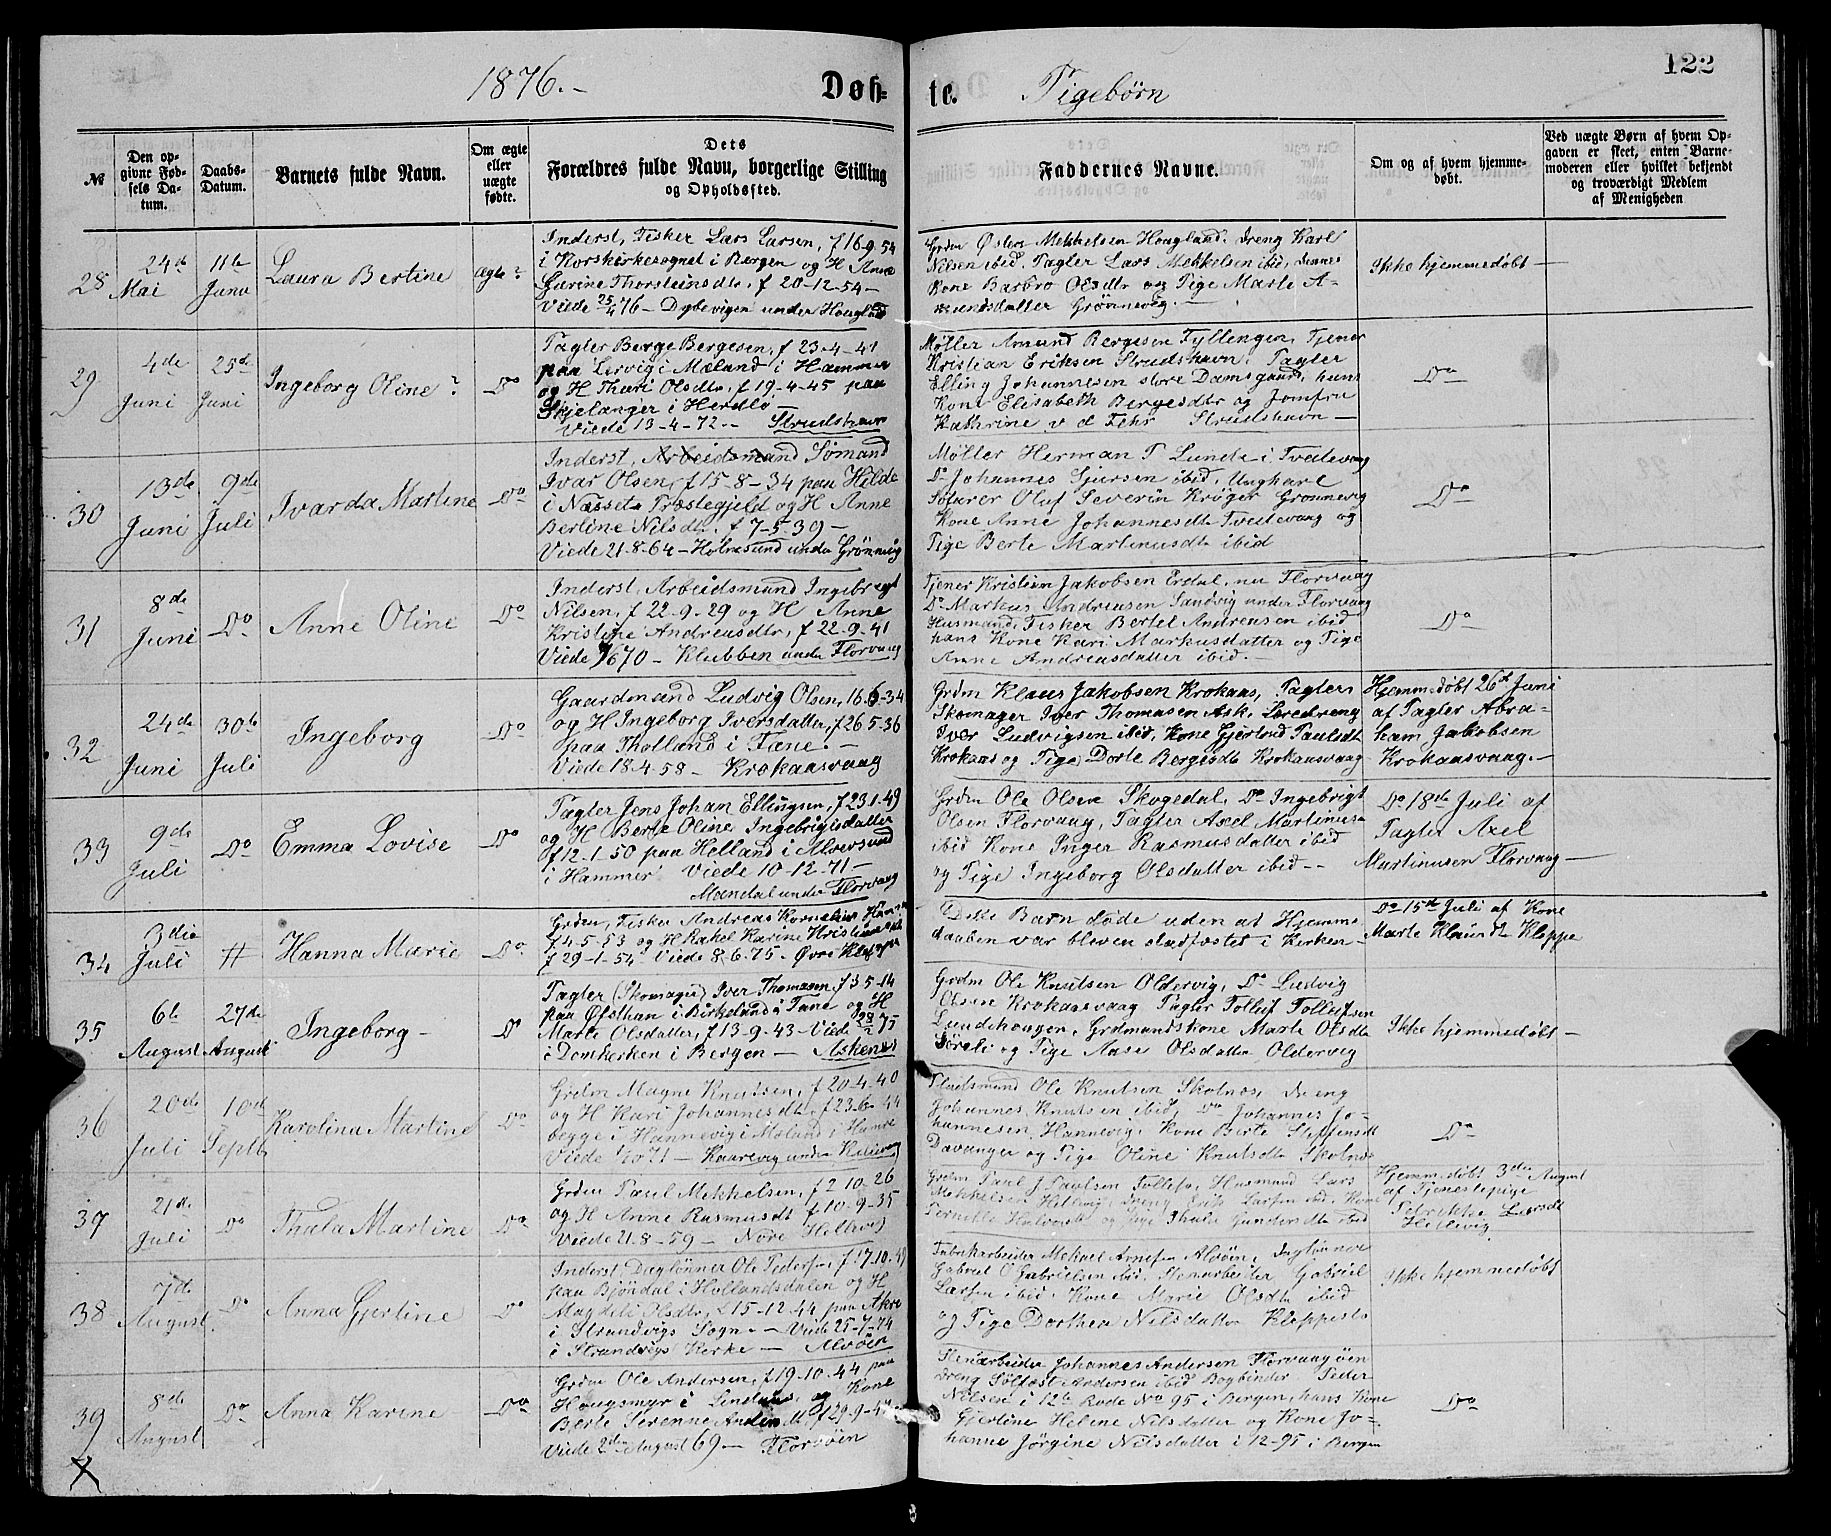 122
1876.-
Døb-
te.
Pigebørn
№
Den op-
givne Fød-
sels Da-
tum.
Daabs-
Datum.
Barnets fulde Navn.
Om ægte
eller
uægte
fødte.
Dets
Forældres fulde Navn, borgerlige Stilling
og Opholdssted.
Faddernes Navne.
Om og af hvem hjemme-
døbt.
Ved uægte Børn af hvem Op-
gaven er skeet, enten Barne-
moderen eller hvilket bekjendt
og troværdigt Medlem
af Menigheden
28
24de
Mai
11te
Juni
Laura Bertine
ægte
Inderst, Fisker Lars Larsen, f 16-9-54
i Korskirkesognet i Bergen og H Anne
Karine Thorsteinsdtr, f 20-12-54-
Viede 25/4 76 - Dybevigen under Hougland
Grdm Østen Mekkelsen Hougland. Dreng Karl
Nilsen ibid, Pagter Lars Mekkelsen ibid, dennes
Kone Barbro Olsdtr og Pige Marte A-
mundsdatter Grønnevig.-
Ikke hjemmedøbt-
29
4de
Juni
25de
Juni
Ingeborg Oline
Do
Pagter Berge Bergesen, f 23-4-41
paa Lervig i Mæland i Hammer
og H Thuri Olsdtr, f 19-4-45 paa
Skjelanger i Herdlø-
Viede 13-4-72-- Strudshavn
Møller Amund Bergesen Fyllengen, Tjener
Kristian Eriksen Strudshavn, Pagter
Elling Johannesen store Damsgaard, hans
Kone Elisabeth Bergesdtr og Jomfru
Kathrine v d Fehr Strudshavn-
Do
30
13de
Juni
9de
Juli
Ivarda Martine
Do
Inderst, Arbeidsmand Sømand
Ivar Olsen, f 15-8-34 paa Hilde
i Næsset Præstegjeld og H Anne
Bertine Nilsdtr, f 7-5-39-
Viede 21-8-64- Holmesund under Grønnevig
Møller Herman T Lunde i Tveitevaag
Do Johannes Sjursen ibid, Ungkarl
Slurer Oluf Severin Krøger Grønnevig
Kone Anne Johannesdtr Tveitevaag og
Pige Berte Martinusdtr ibid
Do
31
8de
Juni
Do
Anne Oline
Do
Inderst, Arbeidsmand Ingebrigt
Nilsen, f 22-9-29 og H Anne
Kristine Andreasdtr, f 22-9-41
Viede 7/6 70- Klubben under Florvaag
Tjener Kristian Jakobsen Erdal, nu Florvaag
Do Markus Andreasen Sandvig under Florvaag
Husmand Fisker Bertel Andreasen ibid
hans Kone Kari Markusdatter og Pige
Anne Andreasdatter ibid.-
Do
32
24de
Juni
30te
Juli
Ingeborg
Do
Gaardmand Ludvig Olsen, 16-6-34
og H Ingeborg Iversdatter, f 26-5-36
paa Tholland i Fane.-
Viede 18-4-58- Krokaasvaag
Grdm Klaus Jakobsen Krokaas, Pagter
Skomager Iver Thomasen Ask, Læredreng
Ivar Ludvigsen ibid, Kone Gjertrud Paulsdtr
Krokaas og Pige Dorte Bergesdtr Krokaasvaag
Hjemmedøbt 26de Juni
af Pagter Abra-
ham Jakobsen
Krokaasvaag.-
33
9de
Juli
Do
Emma Lovise
Do
Pagter Jens Johan Ellingsen, f 23-1-49
og H Berte Oline Ingebrigtsdatter
f 12-1-50 paa Helland i Alversund
i Hammer Viede 10-12-71-
Mandal under Florvaag
Grdm Ole Olsen Skogedal, Do Ingebrigt
Olsen Florvaag, Pagter Axel Martinus
ibid Kone Inger Rasmusdatter ibid
og Pige Ingeborg Olsdatter ibid--
Do 18de Juli af
Pagter Axel
Martinusen Florvaag-
34
3die
Juli
#
Hanna Marie
Do
Grdm, Fisker Andreas Kornelius Hansen
f 4-5-53 og H Rakel Karine Kristiansdtr
f 29-1-54- Viede 8-6-75- Øvre Kleppe
Dette Barn døde uden at Hjemme
daaben var bleven stadfæstet i Kirken-
Do 15de Juli af Kone
Marte Klausdtr Kleppe
35
6te
August
27de
August
Ingeborg-
Do
Pagter (Skomager) Iver Thomasen, f 3-5-14
paa Østhun i Birkeland i Fane og H
Marte Olsdatter, f 13-9-43- Viede 28/2 75
i Domkirken i Bergen- Askenes
Grdm Ole Knutsen Oldervig, Do Ludvig
Olsen Krokaasvaag Pagter Tollef Tollefsen
Lundehougen, Grdmandskone Marte Olsdtr
Søreli og Pige Aase Olsdatter Oldervig
Ikke hjemmedøbt-
36
20de
Juli
10de
Septb
Karolina Martine
Do
Grdm Magne Knutsen, f 20-4-40
og H Kari Johannesdtr, f 23-6-44
begge i Hannevig i Mæland i Hamre
Kaarevig under
Ole Knutsen Skolnæs, Dreng
Johannes Knutsen ibid, Do Johannes Jo-
hannesen Hannevig, Kone Berte Steffensdtr
Davanger og Pige Oline Knutsdtr Skolnæs
Do
37
21de
Juli
Do
Thala Martine
Do
Grdm Paul Mekkelsen, f 2-10-26
og H Anne Rasmusdt f 10-9-35
Viede 21-8-59- Nore
Grdm Paul J Paulsen Follese, Husmand Lars
Mekkelsen Hetlevig, Dreng Erik Larsen ibid, Kone
Pernille og Pige Thala Gundersdtr ibid
Hjemmedøbt 3die August
af Tjenestepige
Larsdt
Hetlevig
38
7de
August
Do
Anna Gjertine
Do
Inderst Daglønner Ole Pedersen, f 17-10-49
paa Bjøndal i Hollandsdalen og H
Magdeli Olsdtr, f 15-12-44 paa Akre
i Strandvigs Sogn.- Viede 25-7-74
i Strandvigs Kirke- Alvøen
Fabrikarbeider Mekael Arnesen Alvøen, Daglønner
Gabriel O Gabrielsen ibid, Stenarbeider Gabriel
Larsen ibid, Kone Marie Olsdtr ibid
og Pige Dorthea Nilsdatter Kleppestø
Ikke hjemmedøbt
39
8de
August
Do
Anna Karine
Do
Grdm Ole Andersen, f 19-10-44 paa
Hougsmyr i Lindaas og Kone
Berte Serenne Anders M, f 29-9-4
Viede 2den August 69- Florvøen
Stenarbeider Johannes Andersen Florvaagøen
Dreng Sølfæst Andersen ibid Bogbinder Peder
Nilsen i 12te Rode No 95 i Bergen, hans Kone
Gjertine Helene Nilsdatter og Kone Jo-
hanne Jørgine Nilsdatter i 12-95 i Bergen
Do
X